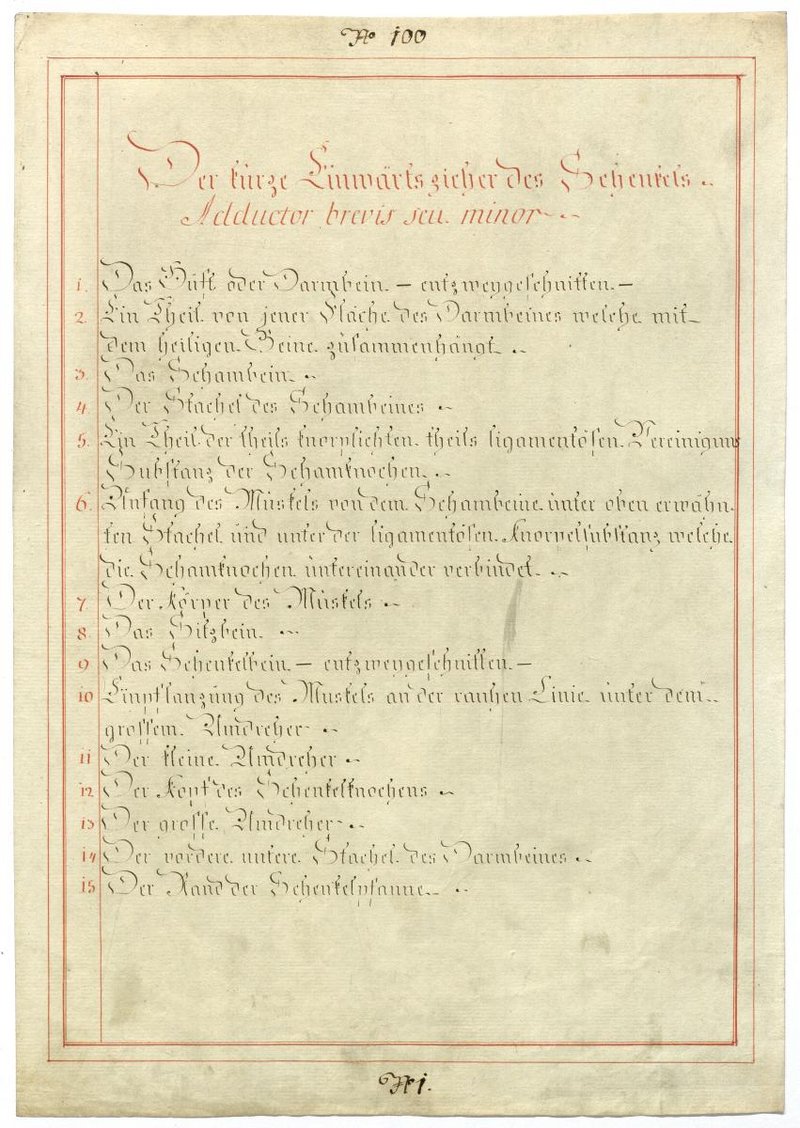 No 100
Der kurze Einwärtszieher des Schenkels.
Adductor brevis seu minor
1. Das Hüft oder Darmbein. — entzweygeschnitten. —
2. Ein Theil von jener Fläche des Darmbeines welche mit
dem heiligen Beine zusammenhängt.
3. Das Schambein.
4. Der Stachel des Schambeines
5. Ein Theil der theils knorplichten theils ligamentösen Vereinigung
Substanz der Schamknochen.
6. Anfang des Muskels von dem Schambeine unter oben erwähn
ten Stachel und unter der ligamentösen Knorpelsubstanz welche
die Schamknochen untereinander verbindet.
7. Der Körper des Muskels
8. Das Sitzbein.
9 Das Schenkelbein. — entzweygeschnitten. —
10 Einpflanzung des Muskels an der rauhen Linie unter dem
grossem Umdreher
11 Der kleine Umdreher
12 Der Kopf des Schenkelknochens
13 Der grosse Umdreher
14 Der vordere untere Stachel des Darmbeines
15 Der Rand der Schenkelpfanne